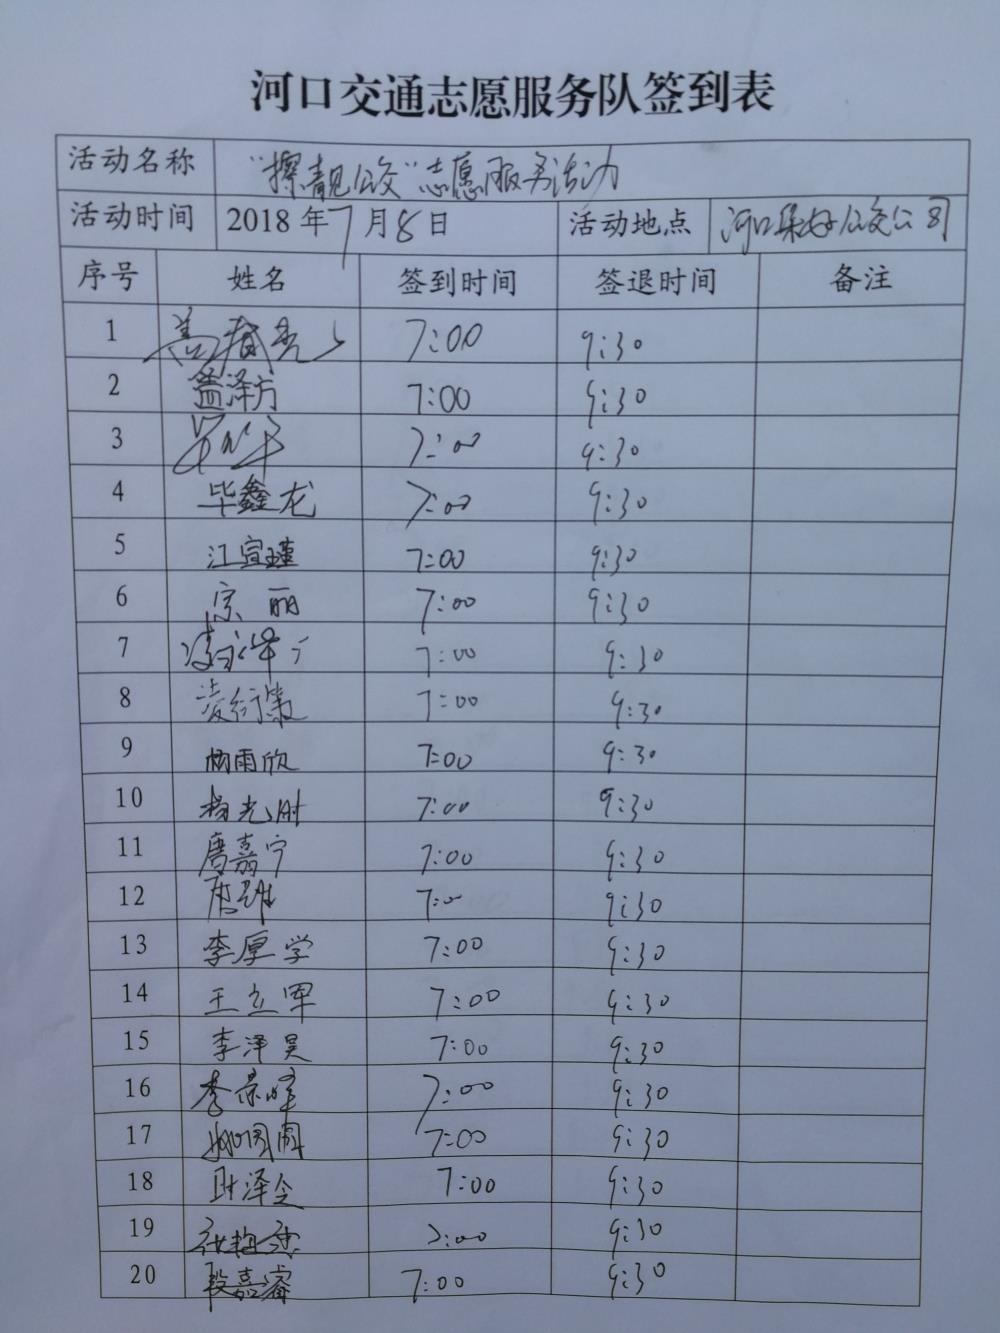 河口交通志愿服务队签到表
活动名称 “擦靓公交”志愿服务活动
活动时间 2018年7月8日 活动地点 河口集好公交公司
序号 姓名 签到时间 签退时间 备注
1 盖春亮 7:00 9:30
2 盖泽方 7:00 9:30
3 7:00 9:30
4 毕鑫龙 7:00 9:30
5 江宣瑾 7:00 9:30
6 宗丽 7:00 9:30
7 7:00 9:30
8 凌衍策 7:00 9:30
9 杨雨欣 7:00 9:30
10 杨光 7:00 9:30
11 唐嘉宁 7:00 9:30
12 唐 7:00 9:30
13 李厚学 7:00 9:30
14 王立军 7:00 9:30
15 李泽昊 7:00 9:30
16 李景峰 7:00 9:30
17 7:00 9:30
18 泽仝 7:00 9:30
19 张梅 7:00 9:30
20 段嘉睿 7:00 9:30